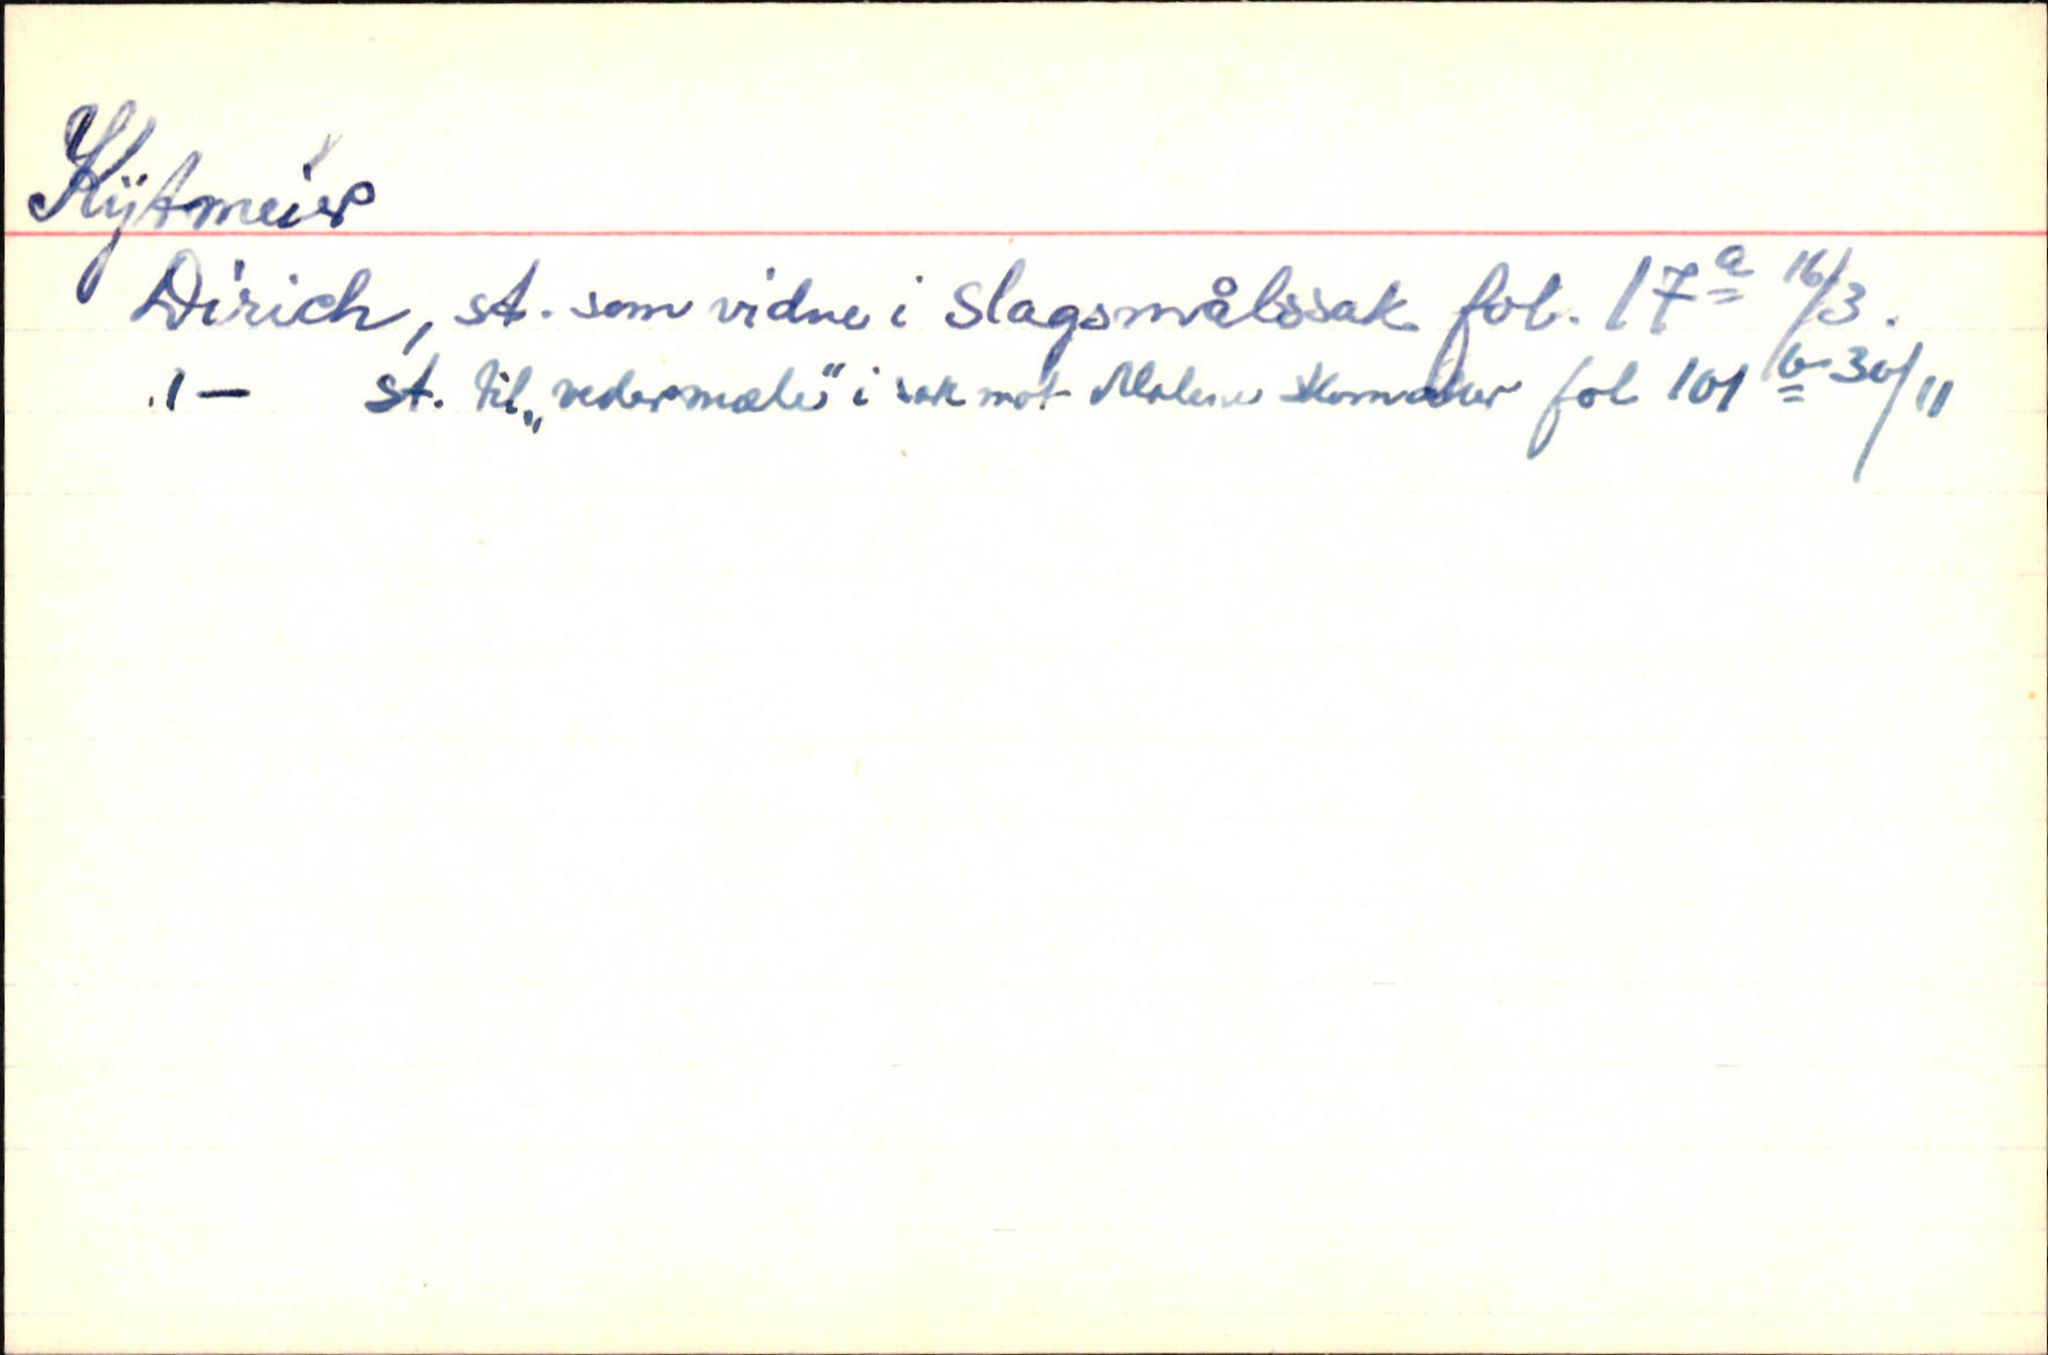 Kÿtmeier
Dirich, st. som vidne i slagsmålssak fol. 17a 16/3.
-1- st. til "vedermæle" i sak mot Malene Skomaker fol 101 b 30/11